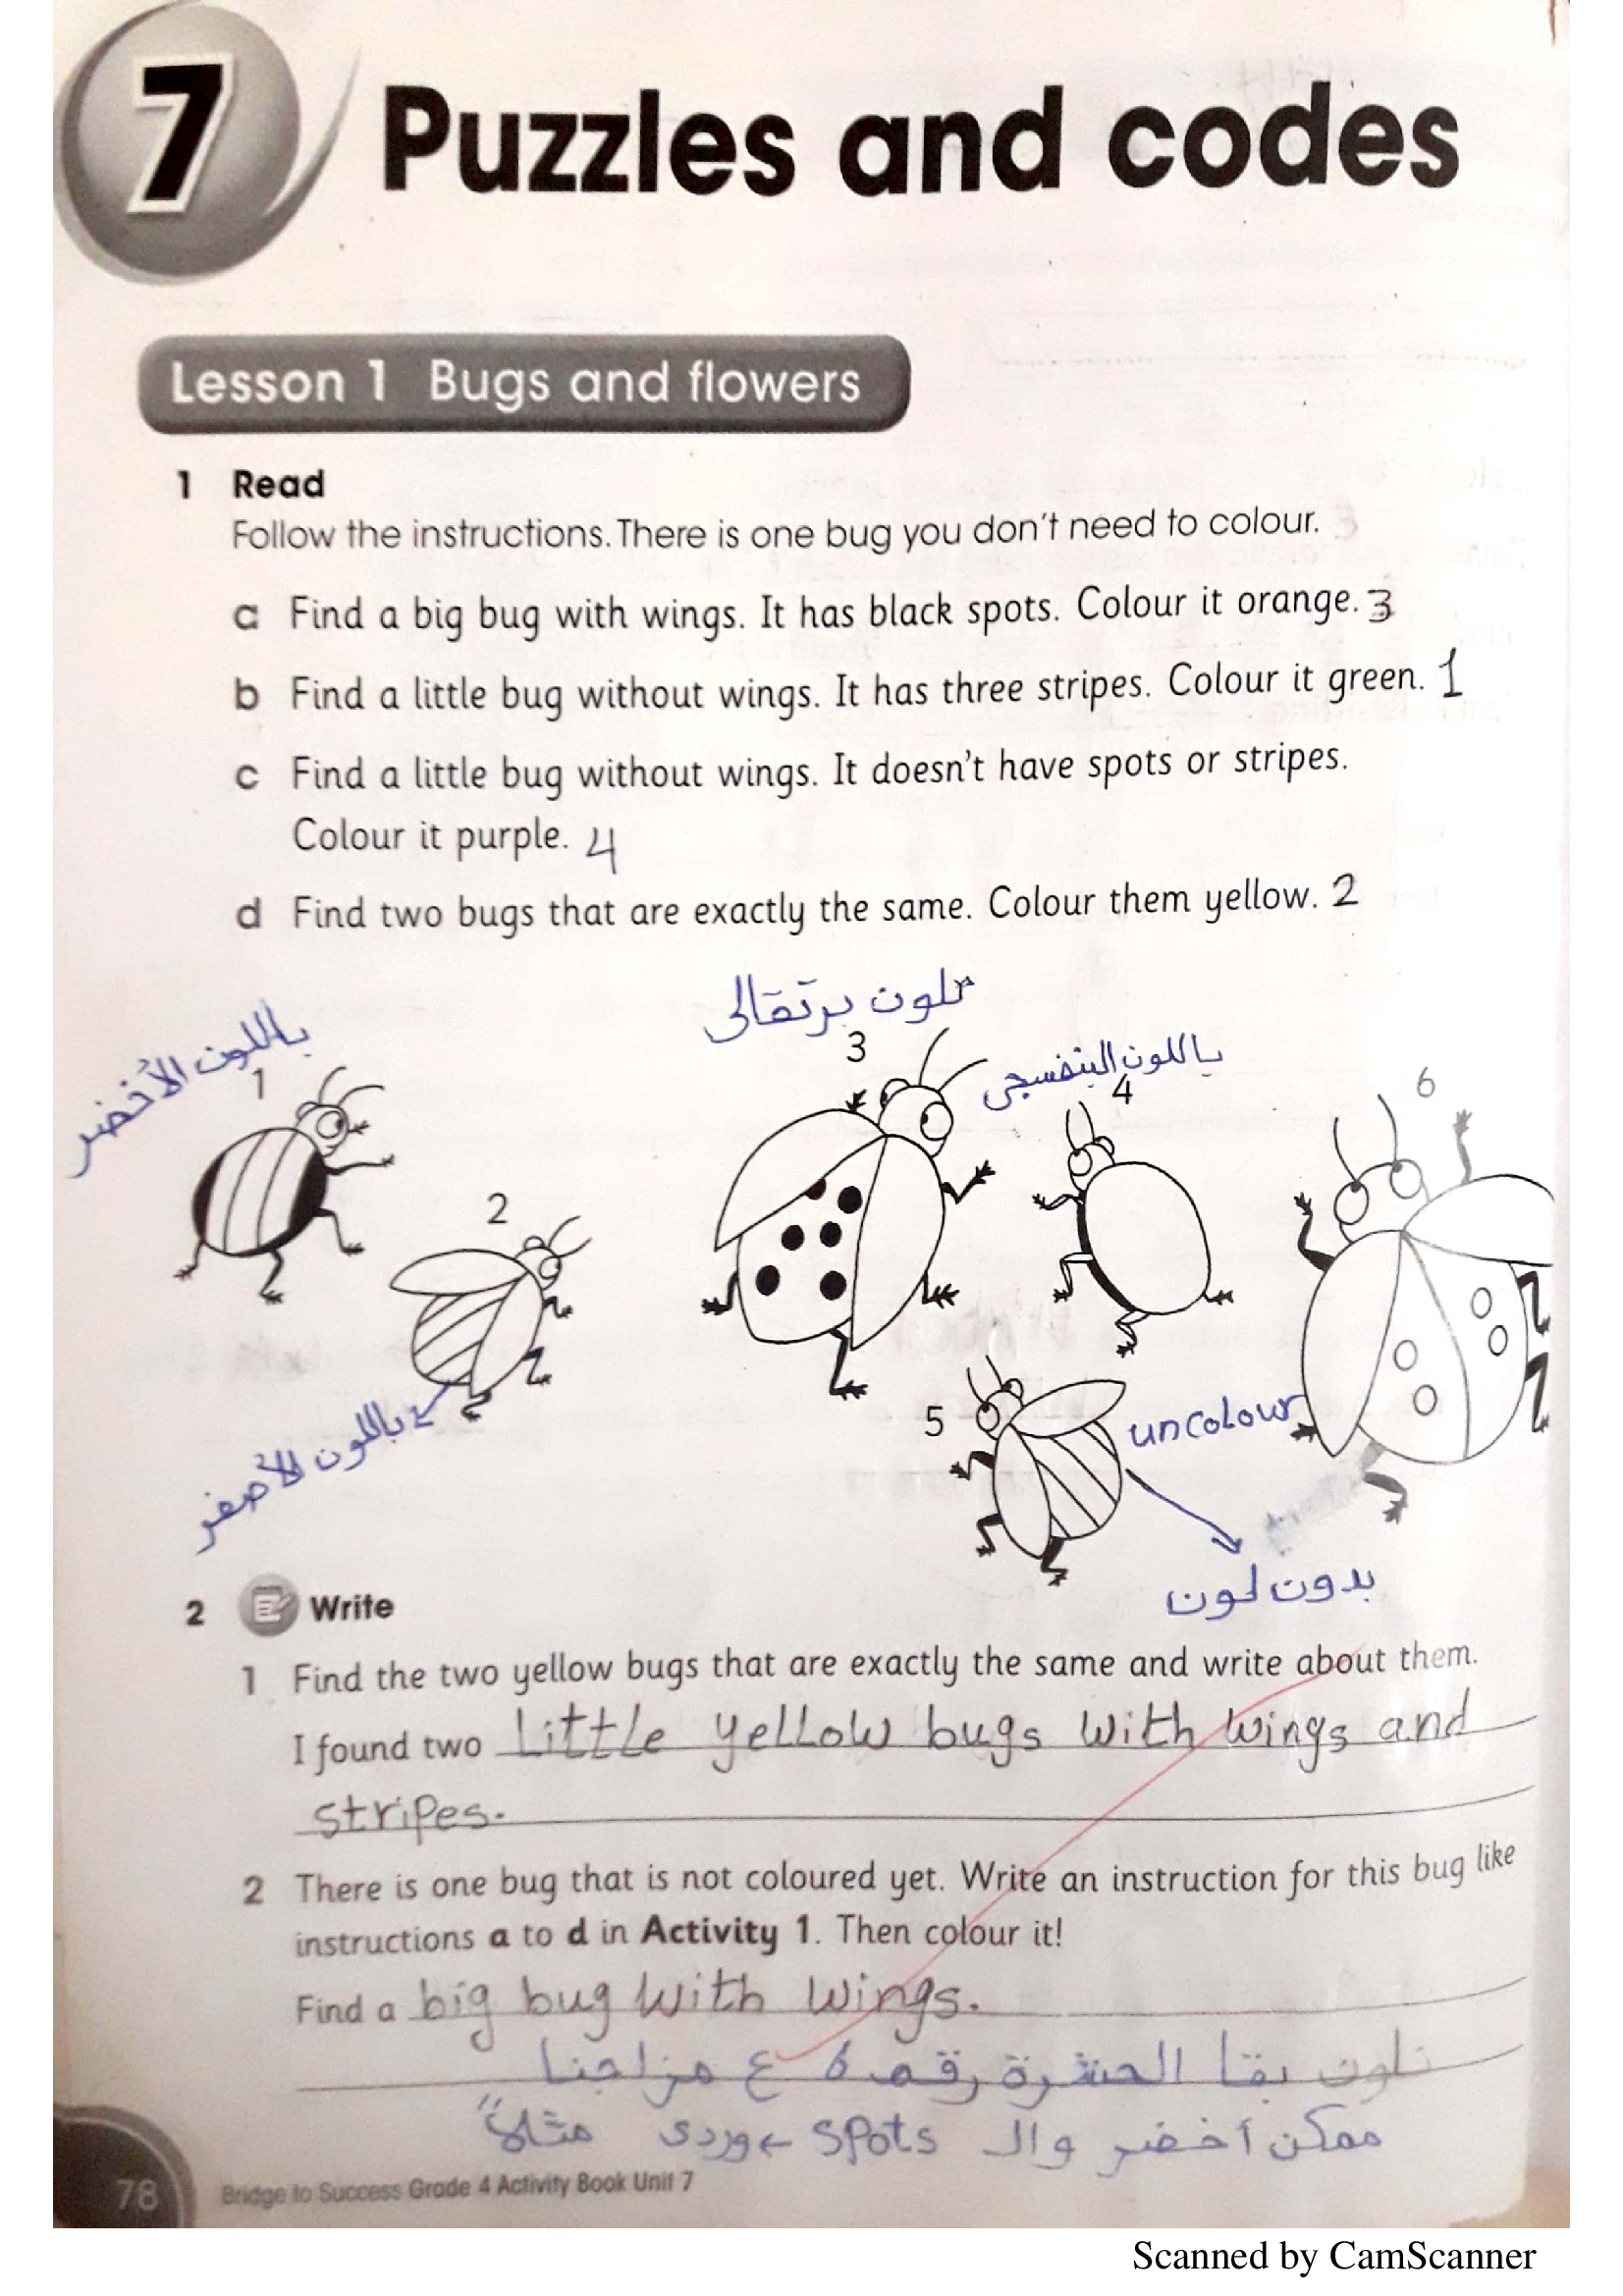 7 Puzzles and codes
Lesson 1 Bugs and flowers
1 Read
Follow the instructions. There is one bug you don't need to colour.
a Find a big bug with wings. It has black spots. Colour it orange. 3
b Find a little bug without wings. It has three stripes. Colour it green. 1
c Find a little bug without wings. It doesn't have spots or stripes.
Colour it purple. 4
d Find two bugs that are exactly the same. Colour them yellow. 2
باللون الأخضر
1
2
باللون الأصفر
نلون برتقالى
3
باللون البنفسجى
4
6
5
uncolour
بدون لون
2 Write
1 Find the two yellow bugs that are exactly the same and write about them.
I found two Little yellow bugs with wings and
stripes.
2 There is one bug that is not coloured yet. Write an instruction for this bug like
instructions a to d in Activity 1. Then colour it!
Find a big bug with wings.
نلون بقا الحشرة رقم 6 ع مزاجنا
ممكن أخضر وال spots ← وردى مثلاً
78 Bridge to Success Grade 4 Activity Book Unit 7
Scanned by CamScanner